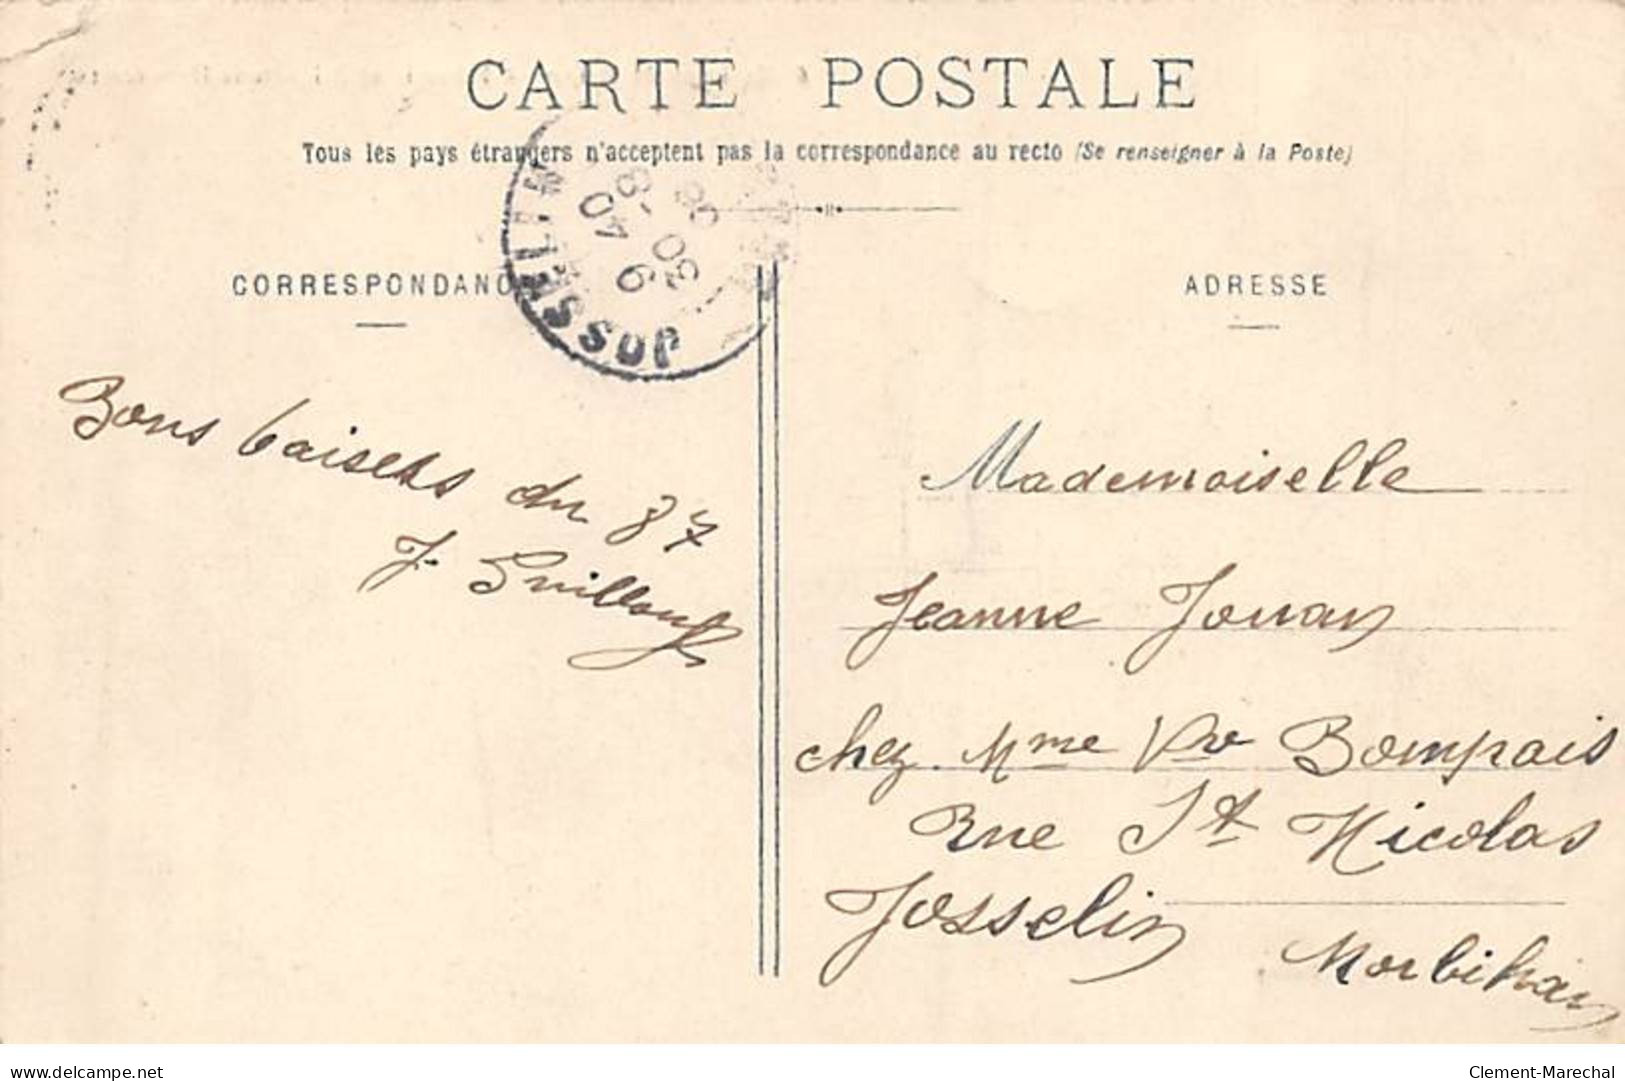 CARTE POSTALE
Tous les pays étrangers n'acceptent pas la correspondance au recto (Se renseigner à la Poste)
JOSSELIN
CORRESPONDANC
Bons baisers du 87
J.
ADRESSE
Mademoiselle
Jeanne Jouan
chez Mme Vve Bompais
Rue St Nicolas
Josselin
Morbihan
delcampe.net
Clement-Marechal